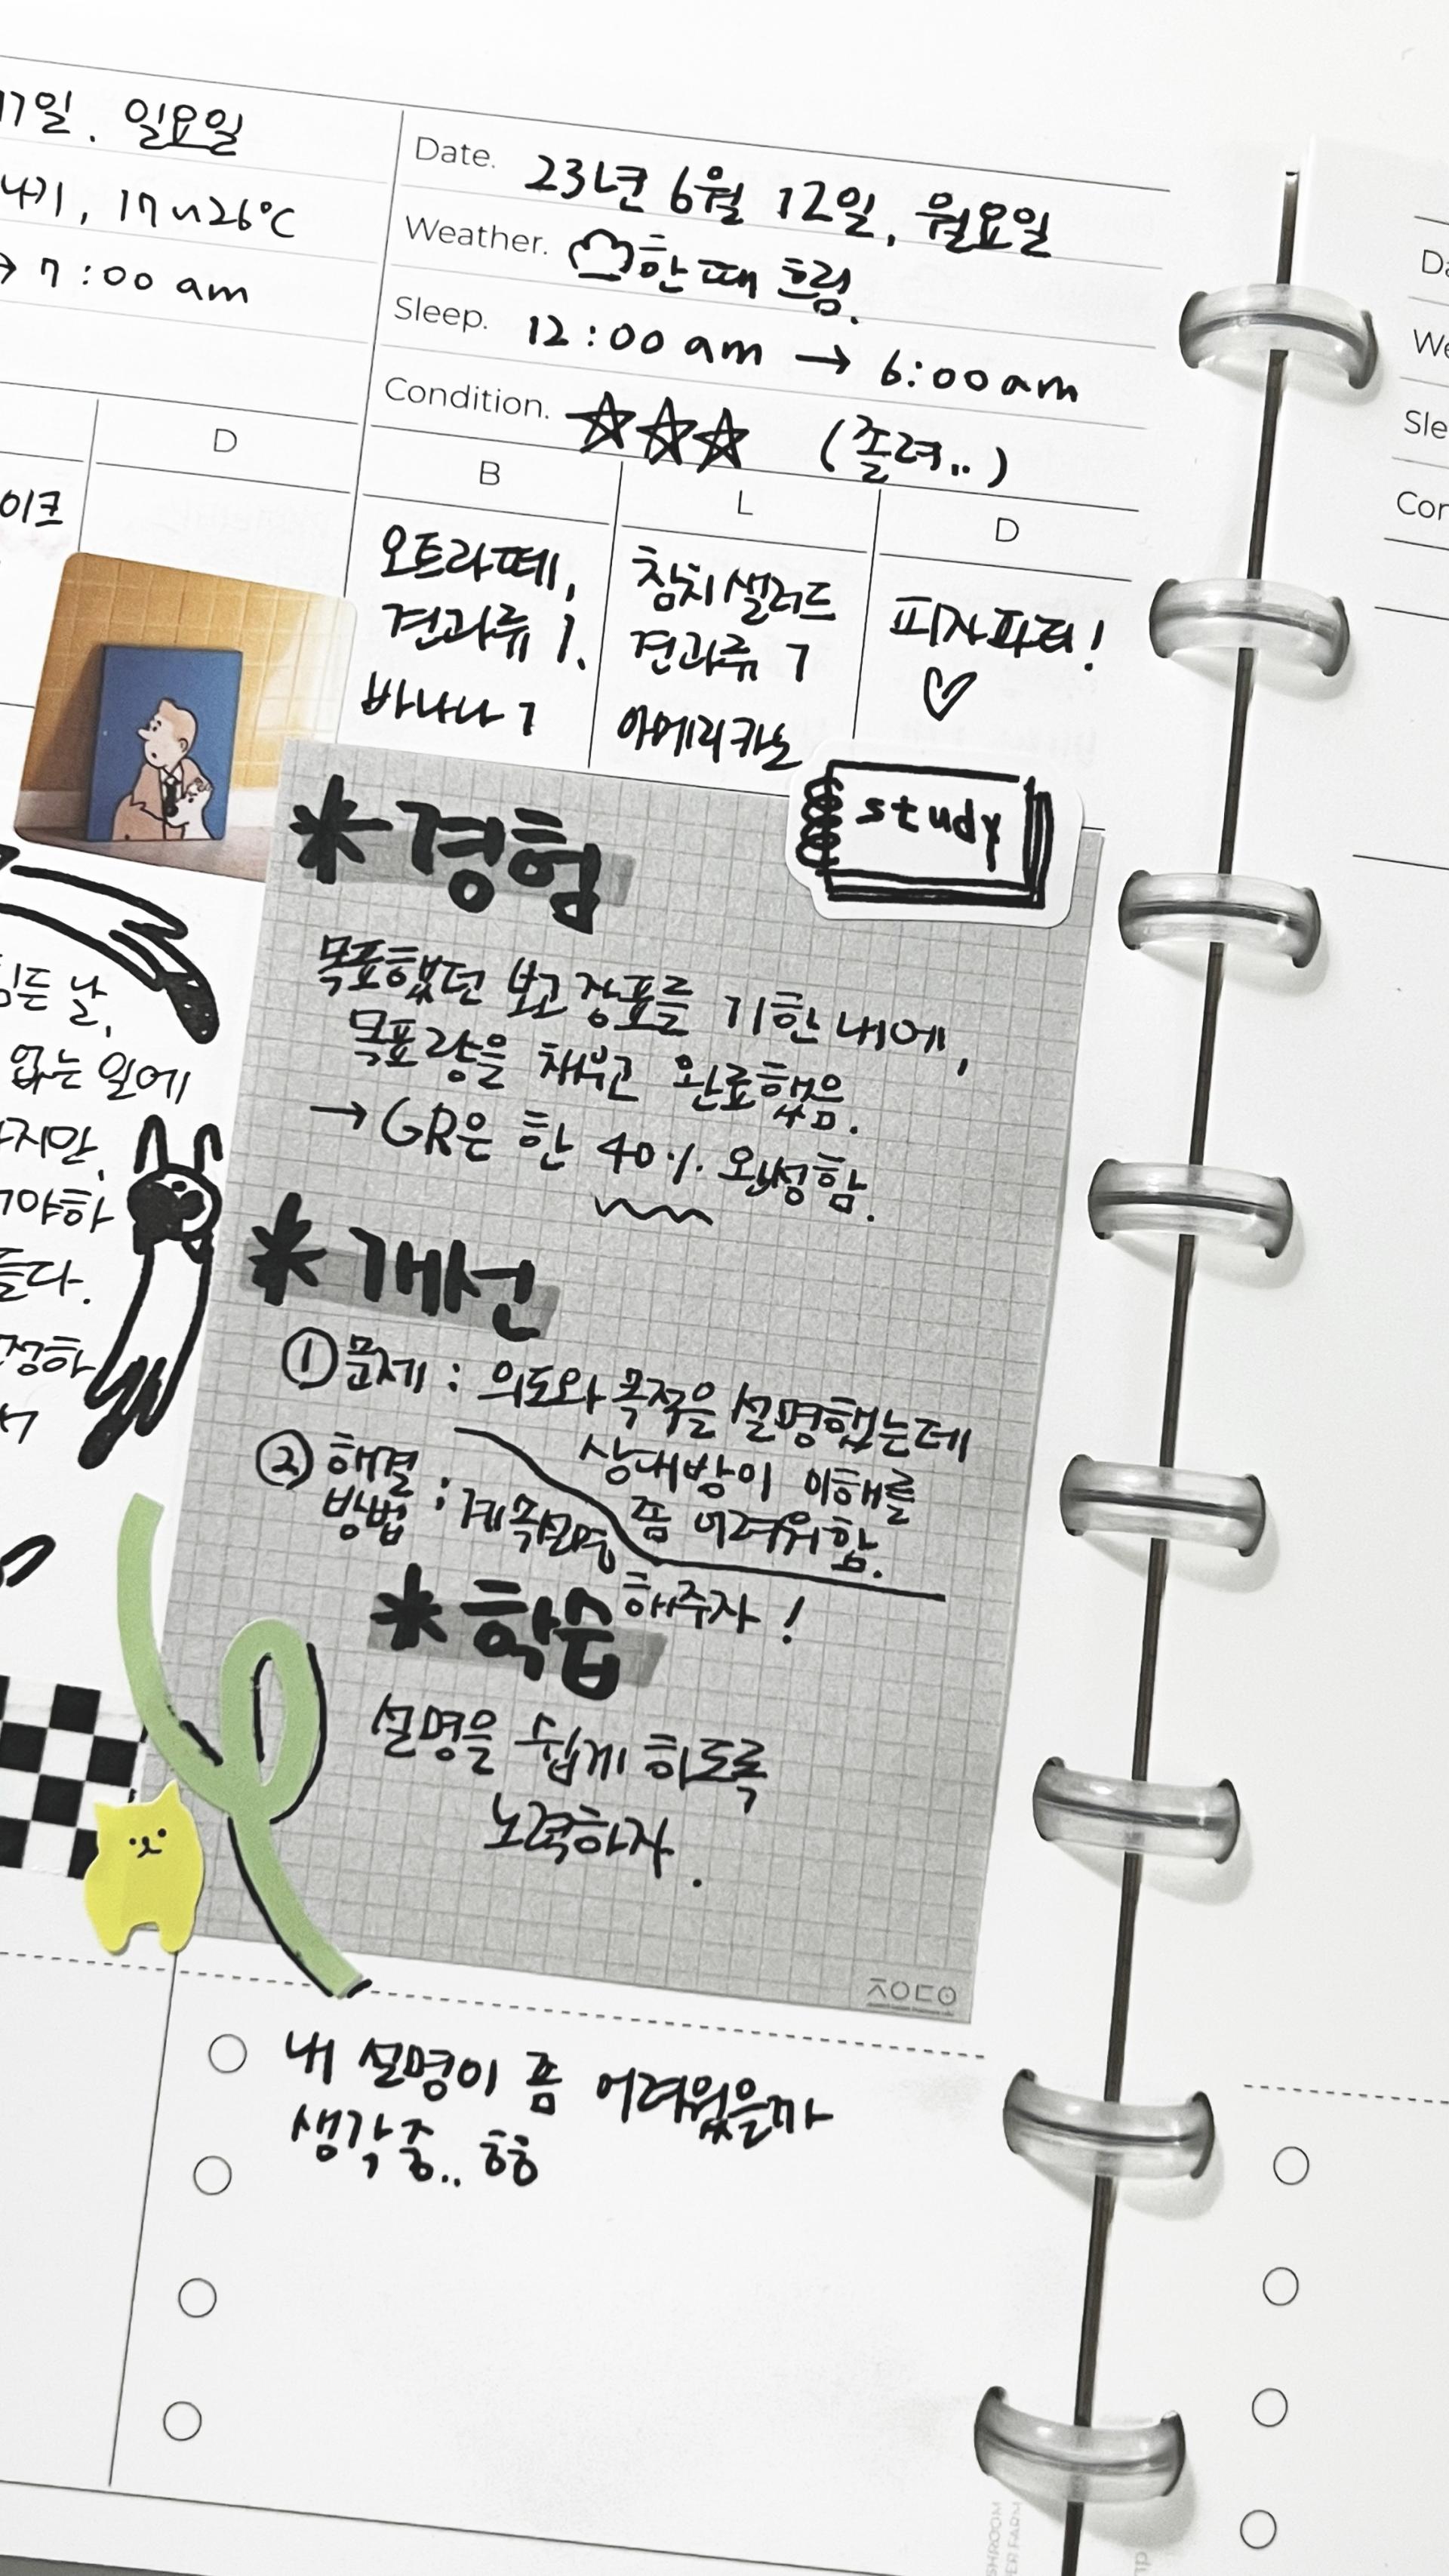 17일. 일요일
나기, 17~26℃
→ 7:00 am
D
이크
힘든 날,
없는 일에
하지만,
기야하
들다.
정하
서
Date. 23년 6월 12일, 월요일
Weather. 한때 흐림.
Sleep. 12:00 am → 6:00 am
Condition. ☆☆☆ (졸려..)
B L D
오트라떼,
견과류 1.
바나나 1
참치샐러드
견과류 1
아메리카노
피자파티!
♡
study
*경험
목표했던 보고 장표를 기한 내에,
목표량을 채우고 완료했음.
→ GR은 한 40% 완성함.
*개선
① 문제 : 의도와 목적을 설명했는데
상대방이 이해를
좀 어려워함.
② 해결
방법 : 계속 설명
해주자!
*학습
설명을 쉽게 하도록
노력하자.
ㅈㅇㄷㅇ
내 설명이 좀 어려웠을까
생각중.. 흐흥
Da
We
Sle
Con